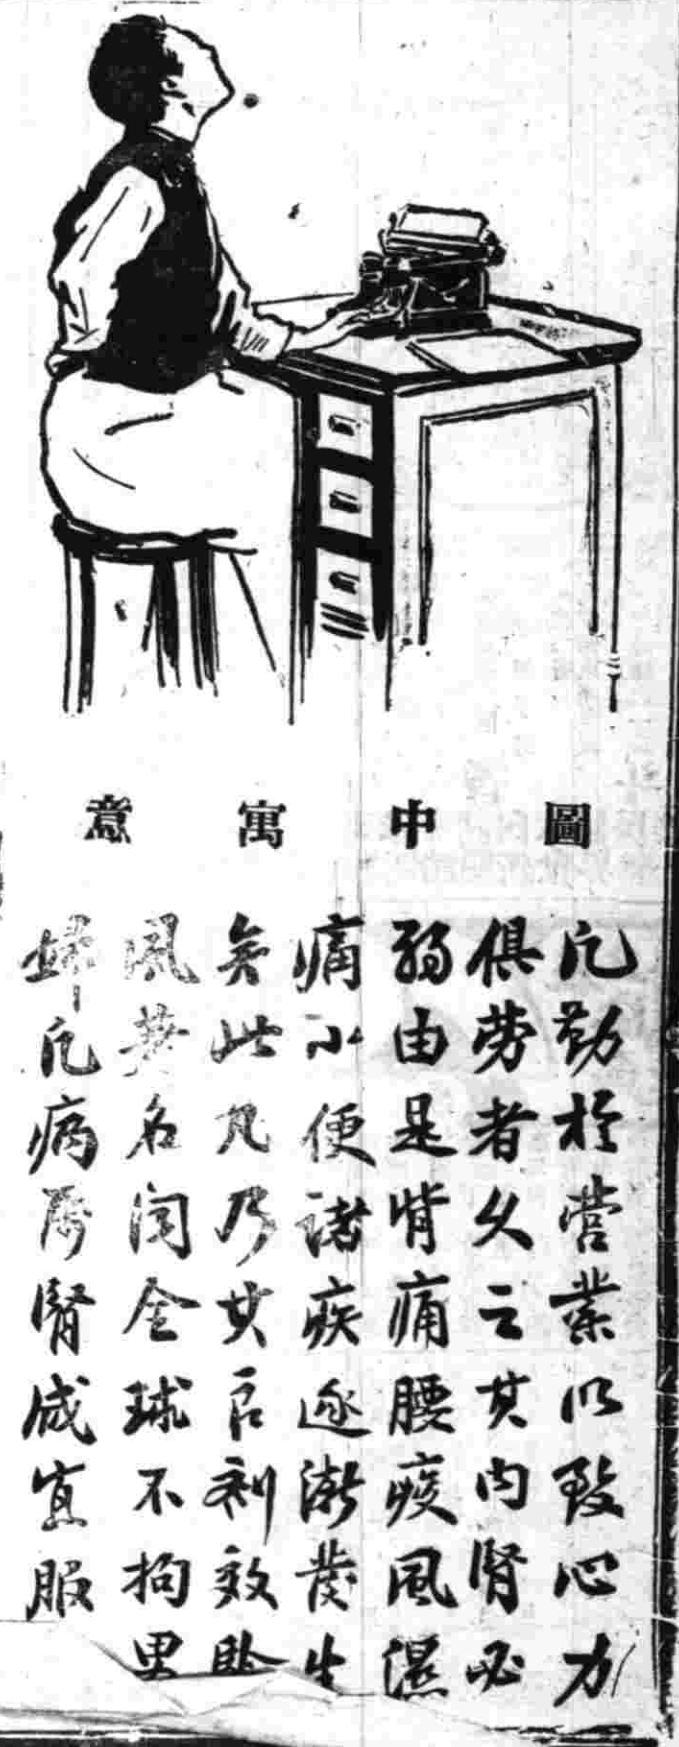 圖中寓意
凡勤於營業以致心力
俱勞者久之其內腎必
弱由是背痛腰痠風濕
痛小便諸疾逐漸發生
矣此丸乃其良劑效驗
夙著名聞全球不拘男
婦凡病屬腎咸宜服